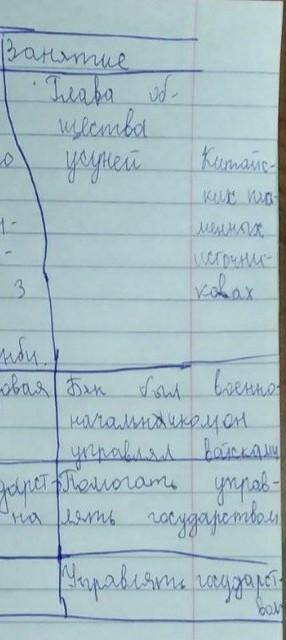 Занятие
Глава об-
щества
о усуней Китайс-
ких пла-
н- менных
- источни-
3 ковах
нби.
овая Бек был военно-
начальникомон
управлял войсками
дарст- Помогать управ-
на лять государством
Управлять государст-
вом